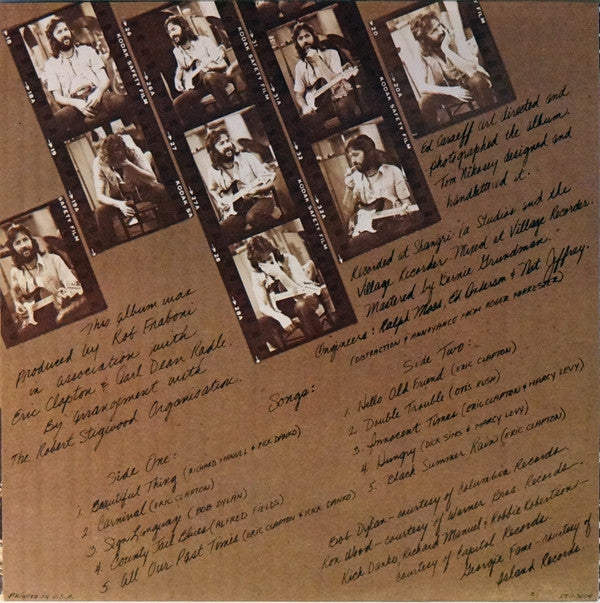 KODAK SAFETY FILM
KODAK SAFETY FILM
KODAK SAFETY FILM
SAFETY FILM
Ed Caraeff art directed and
photographed the album.
Tom Nikosey designed and
handlettered it.
Recorded at Shangri-La Studios and the
Village Recorder. Mixed at Village Recorder.
Mastered by Bernie Grundman.
Engineers: Ralph Moss, Ed Anderson & Nat Jeffrey.
(DISTRACTION & ANNOYANCE FROM ROGER FORRESTER)
This album was
Produced by Rob Fraboni
in association with
Eric Clapton & Carl Dean Radle.
By arrangement with
The Robert Stigwood Organisation.
Songs:
Side One:
1. Beautiful Thing (RICHARD MANUEL & RICK DANKO)
2. Carnival (ERIC CLAPTON)
3. Sign Language (BOB DYLAN)
4. County Jail Blues (ALFRED FIELDS)
5. All Our Past Times (ERIC CLAPTON & RICK DANKO)
Side Two:
1. Hello Old Friend (ERIC CLAPTON)
2. Double Trouble (OTIS RUSH)
3. Innocent Times (ERIC CLAPTON & MARCY LEVY)
4. Hungry (DICK SIMS & MARCY LEVY)
5. Black Summer Rain (ERIC CLAPTON)
Bob Dylan - courtesy of Columbia Records.
Ron Wood - courtesy of Warner Bros. Records -
Rick Danko, Richard Manuel & Robbie Robertson -
courtesy of Capitol Records.
Georgie Fame - courtesy of
Island Records.
PRINTED IN U.S.A.